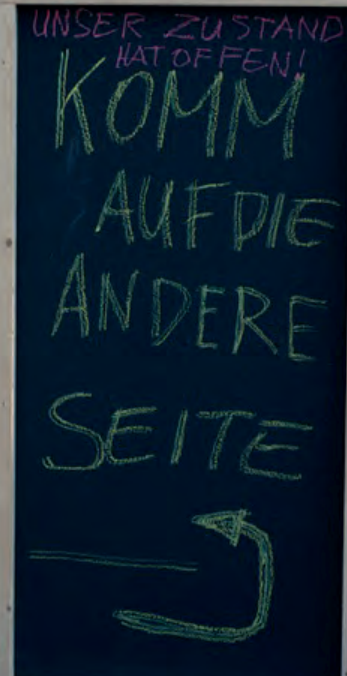 UNSER ZUSTAND
HAT OFFEN!
KOMM
AUF DIE
ANDERE
SEITE